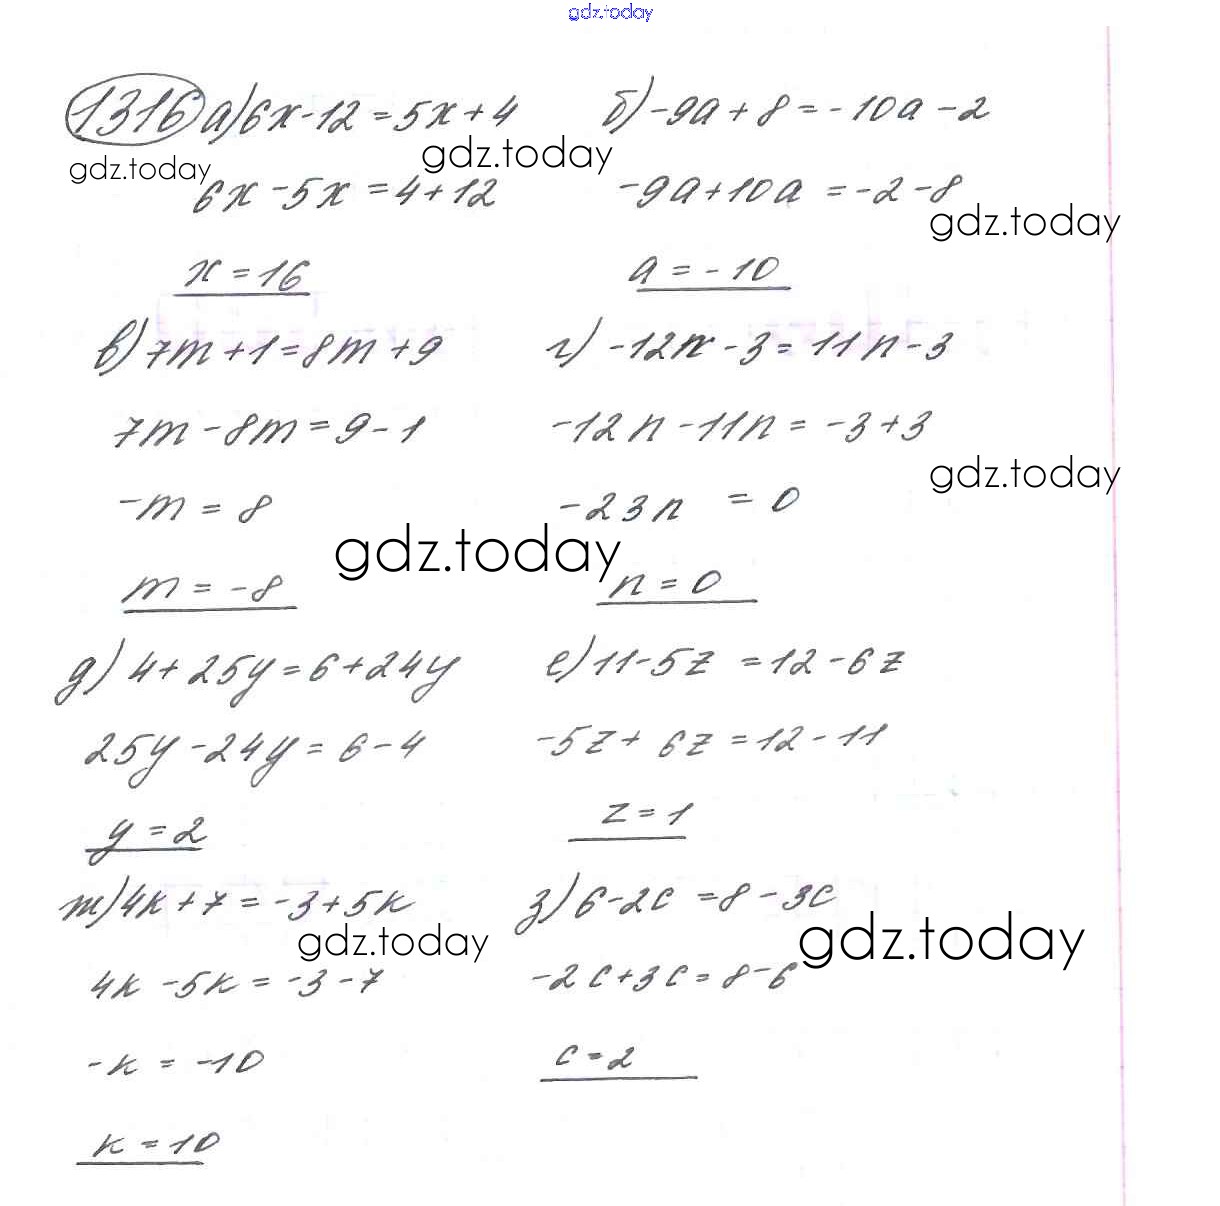 gdz.today
1316 а) 6x - 12 = 5x + 4
б) -9a + 8 = -10a - 2
gdz.today
gdz.today
6x - 5x = 4 + 12
-9a + 10a = -2 - 8
gdz.today
x = 16
a = -10
в) 7m + 1 = 8m + 9
г) -12n - 3 = 11n - 3
7m - 8m = 9 - 1
-12n - 11n = -3 + 3
gdz.today
-m = 8
-23n = 0
gdz.today
m = -8
n = 0
д) 4 + 25y = 6 + 24y
е) 11 - 5z = 12 - 6z
25y - 24y = 6 - 4
-5z + 6z = 12 - 11
y = 2
z = 1
ж) 4k + 7 = -3 + 5k
з) 6 - 2c = 8 - 3c
gdz.today
gdz.today
4k - 5k = -3 - 7
-2c + 3c = 8 - 6
-k = -10
c = 2
k = 10